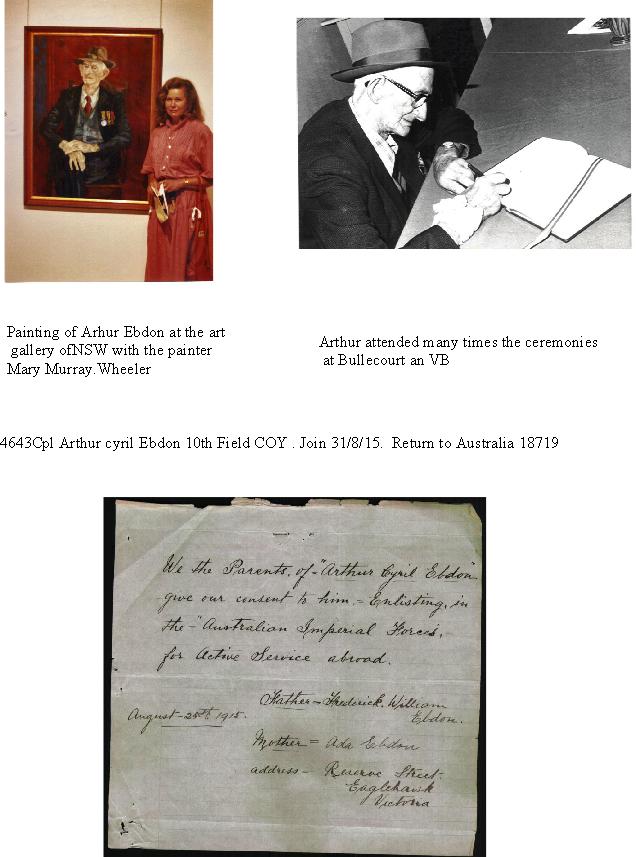 Painting of Arhur Ebdon at the art
gallery ofNSW with the painter
Mary Murray.Wheeler
Arthur attended many times the ceremonies
at Bullecourt an VB
4643Cpl Arthur cyril Ebdon 10th Field COY . Join 31/8/15. Return to Australia 18719
We the Parents, of "Arthur Cyril Ebdon"
give our consent to him - Enlisting, in
the "Australian Imperial Forces, -
for Active Service abroad.
Father - Frederick. William
Ebdon.
August - 25th 1915.
Mother = Ada Ebdon
address - Reserve Street.
Eaglehawk
Victoria